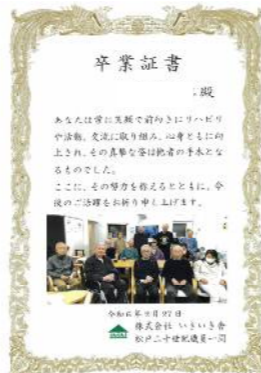 卒業証書
殿
あなたは常に笑顔で前向きにリハビリ
や活動、交流に取り組み、心身ともに向
上され、その真摯な姿は他者の手本とな
るものでした。
ここに、その努力を称えるとともに、今
後のご活躍をお祈り申し上げます。
株式会社 いきいき舎
松戸二十世紀職員一同